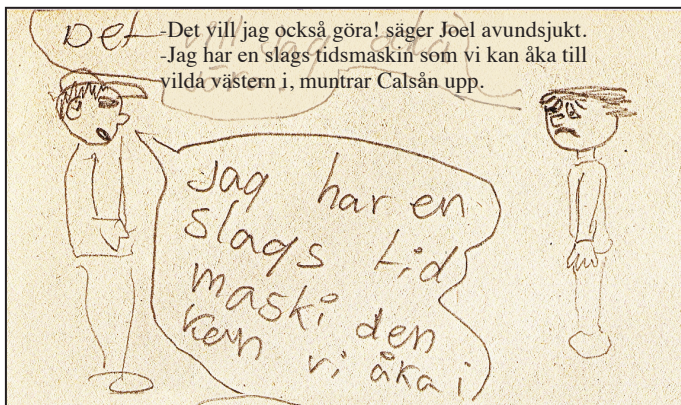 -Det vill jag också göra! säger Joel avundsjukt.
-Jag har en slags tidsmaskin som vi kan åka till
vilda västern i, muntrar Calsån upp.
Det vill jag
jag har en
slags tid
maski den
kan vi åka i